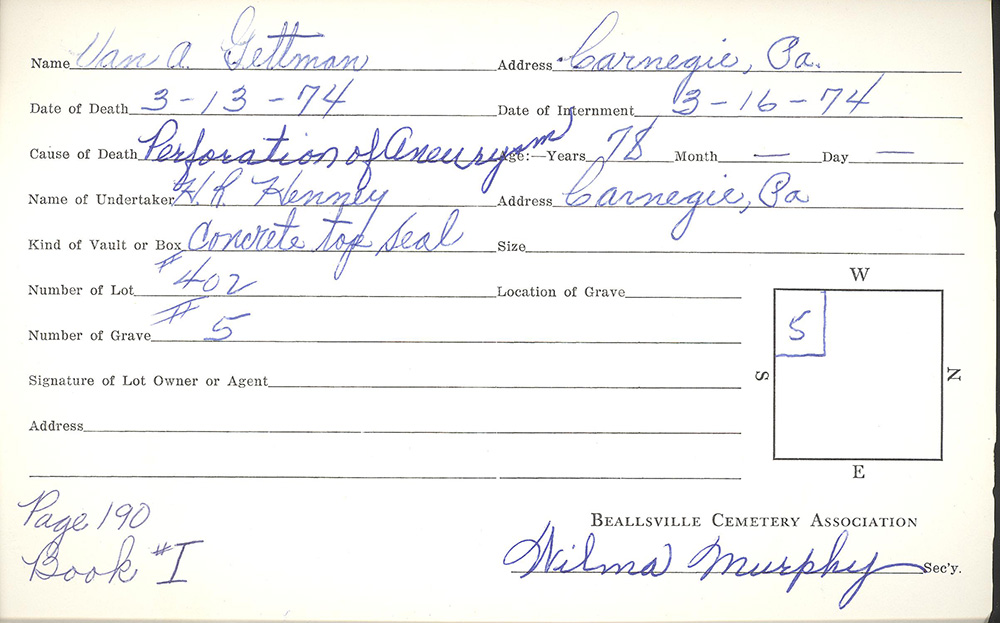 Name Van A. Gettman Address Carnegie, Pa.
Date of Death 3-13-74 Date of Internment 3-16-74
Cause of Death Perforation of Aneurysm Age:—Years 78 Month — Day —
Name of Undertaker H. R. Henney Address Carnegie, Pa
Kind of Vault or Box Concrete top seal Size
Number of Lot #402 Location of Grave
Number of Grave #5
Signature of Lot Owner or Agent
Address
W
5
S N
E
Page 190
Book #I
BEALLSVILLE CEMETERY ASSOCIATION
Wilma Murphy Sec'y.